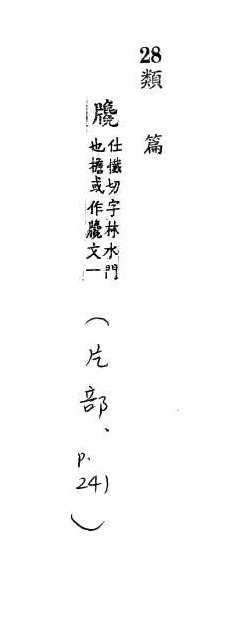 28
類篇
仕懺切字林水門
也檐或作文一
（片部、p.241）